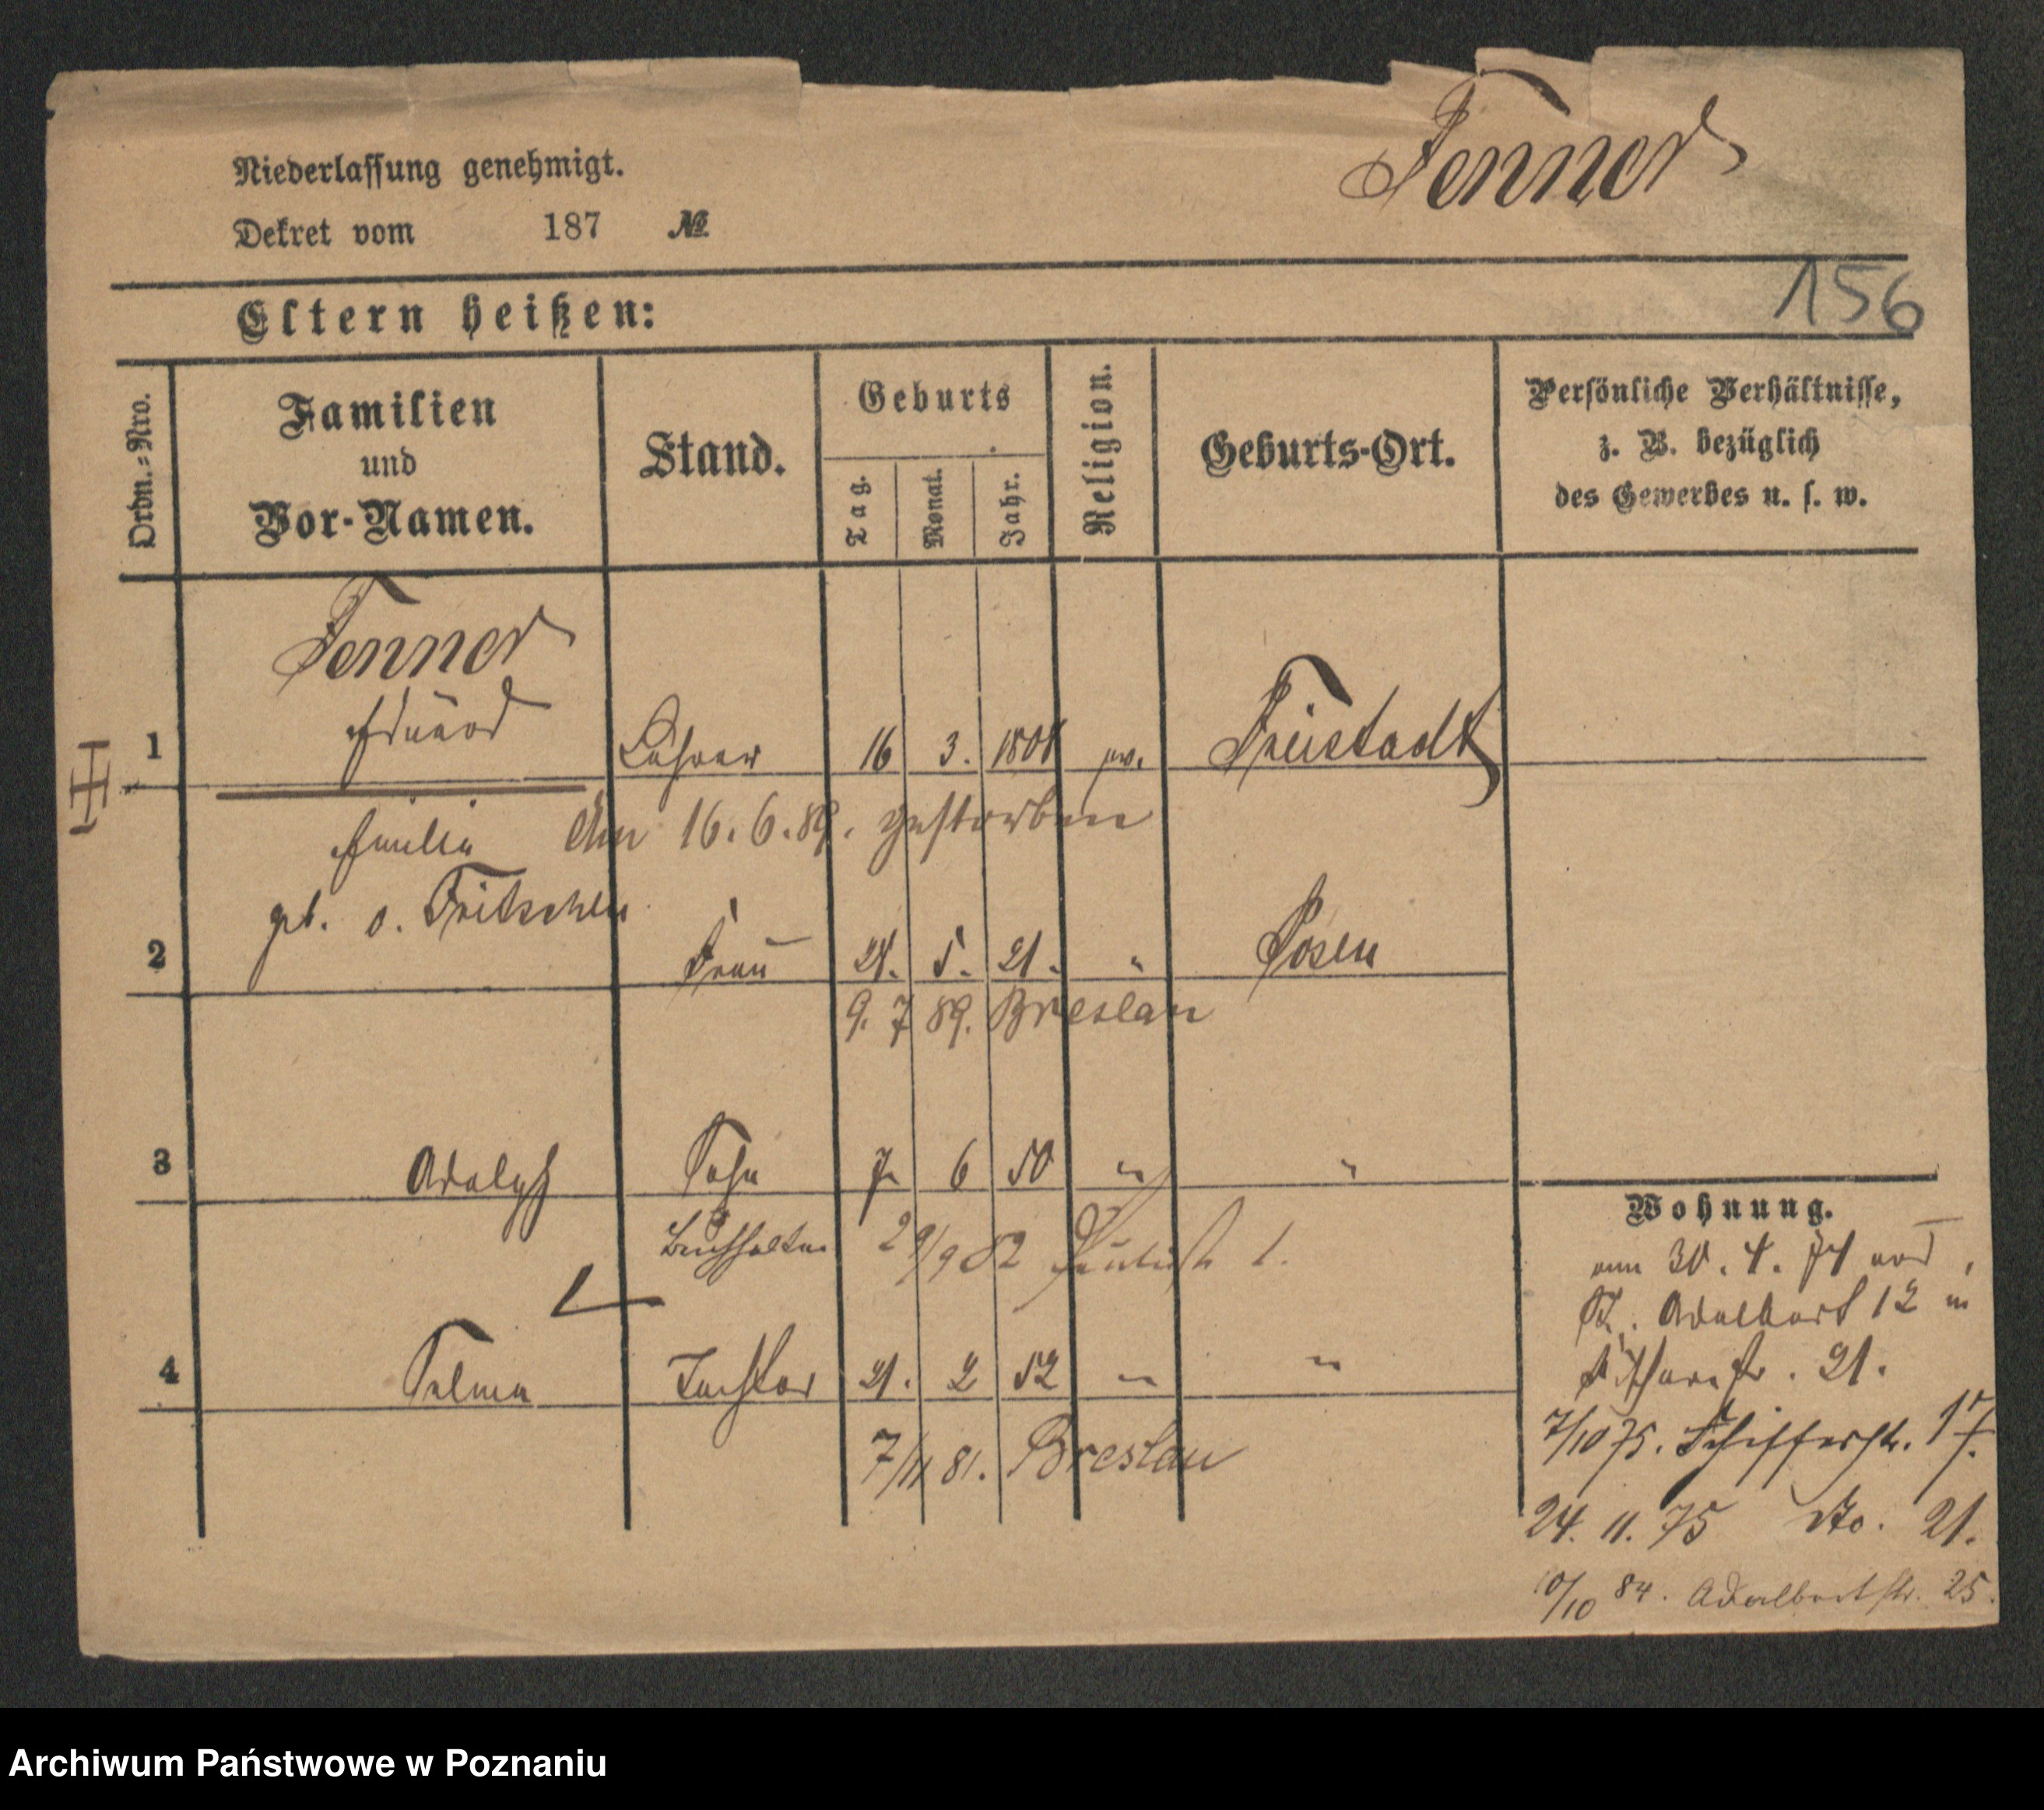 Fenner
Niederlassung genehmigt.
Dekret vom 187 №
156
Eltern heißen:
Ordn.-Nro.
Familien
und
Vor-Namen.
Stand.
Geburts
Tag.
Monat.
Jahr.
Religion.
Geburts-Ort.
Persönliche Verhältnisse,
z. B. bezüglich
des Gewerbes u. s. w.
Fenner
Eduard
1 Lehrer 16 3. 1808 ev. Freistadt
Emilie Am 16. 6. 89. gestorben
geb. v. Fritschen
2 Frau 28. 5. 21. " Posen
9. 7 89. Breslau
3 Adolph Sohn 7 6 50 " "
Buchhalter 29/9 82 1.
4 Selma Tochter 21. 2 52 " "
7/11 81. Breslau
Wohnung.
am 30. 4. 74 von
St. Adalbert 12 n
21.
7/10 75. Schifferstr. 17.
24. 11. 75 do. 21.
10/10 84. Adalbertstr. 25.
Archiwum Państwowe w Poznaniu